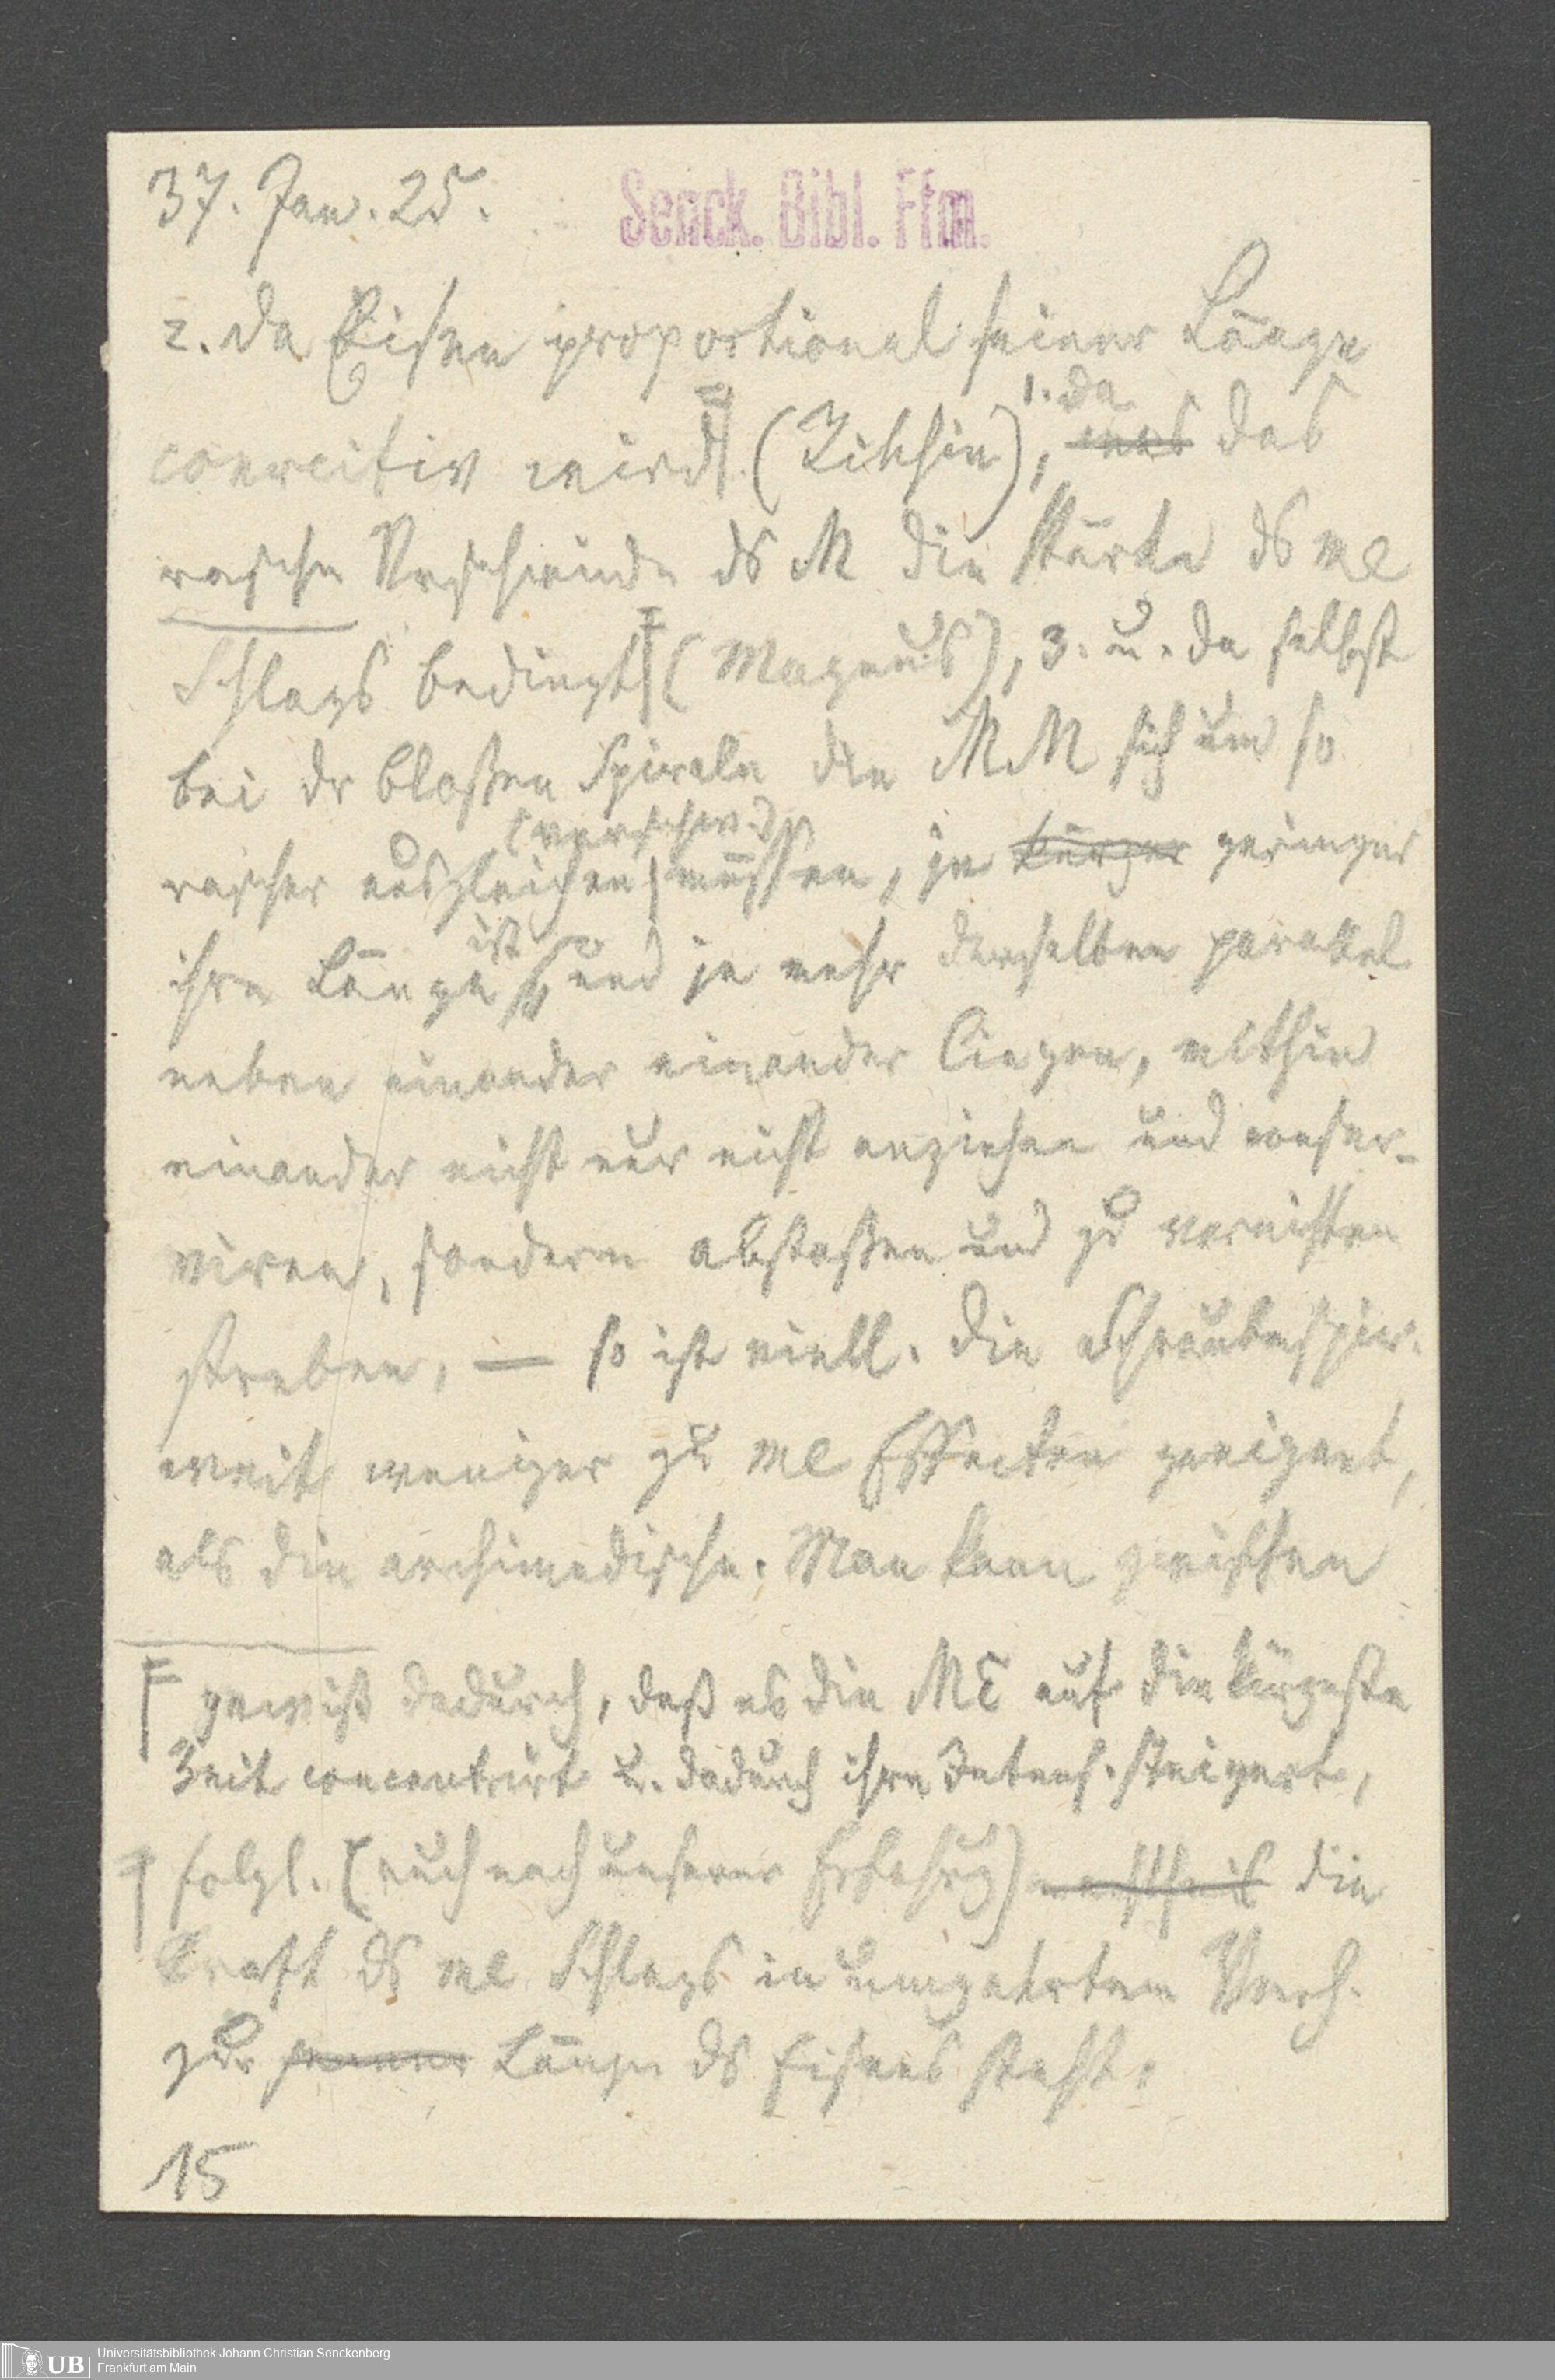 37. Jan. 25.
Senck. Bibl. Ffm.
2. da Eisen proportional seiner Länge
1. da
coercitiv wird (), das
rasche Verschwinden ds M die Stärke ds me
Schlags bedingt (Magnus), 3. u. da selbst
bei dr bloßen Spirale die MM sich um so
(verschw.)
rascher ausgleichen müssen, je kürzer geringer
ist
ihre Länge und je mehr derselben parallel
neben einander einander liegen, mithin
einander nicht nur nicht anziehen und conser-
viren, sondern abstoßen und zu vernichten
streben, — so ist viell. die Schraubenspir.
weit weniger zu me Effecten geeignet,
als die archimedische. Man kann zwischen
gewiß dadurch, daß es die ME auf die kürzeste
Zeit concentrirt u. dadurch ihre Intens. steigert,
folgl. (auch nach unserer Erfahrg) die
Kraft ds me Schlags in umgekehrtem Verh.
zur Länge ds Eisens steht.
15
UB
Universitätsbibliothek Johann Christian Senckenberg
Frankfurt am Main